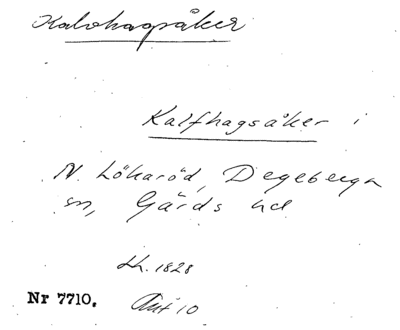 Kalvhagsåker
Kalfhagsåker i
N. Lökaröd, Degeberga
sn, Gärds hd
Lh. 1828
Nr 7710. Akt 10